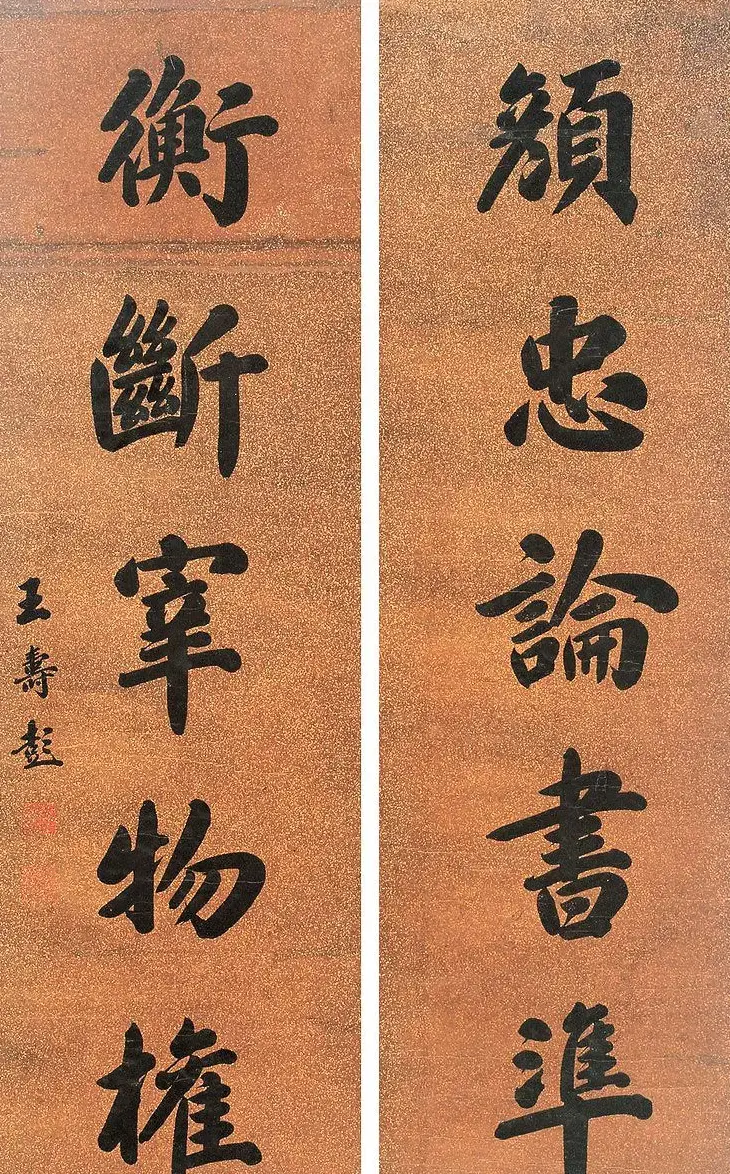 顏忠論書準
衡斷宰物權
王壽彭